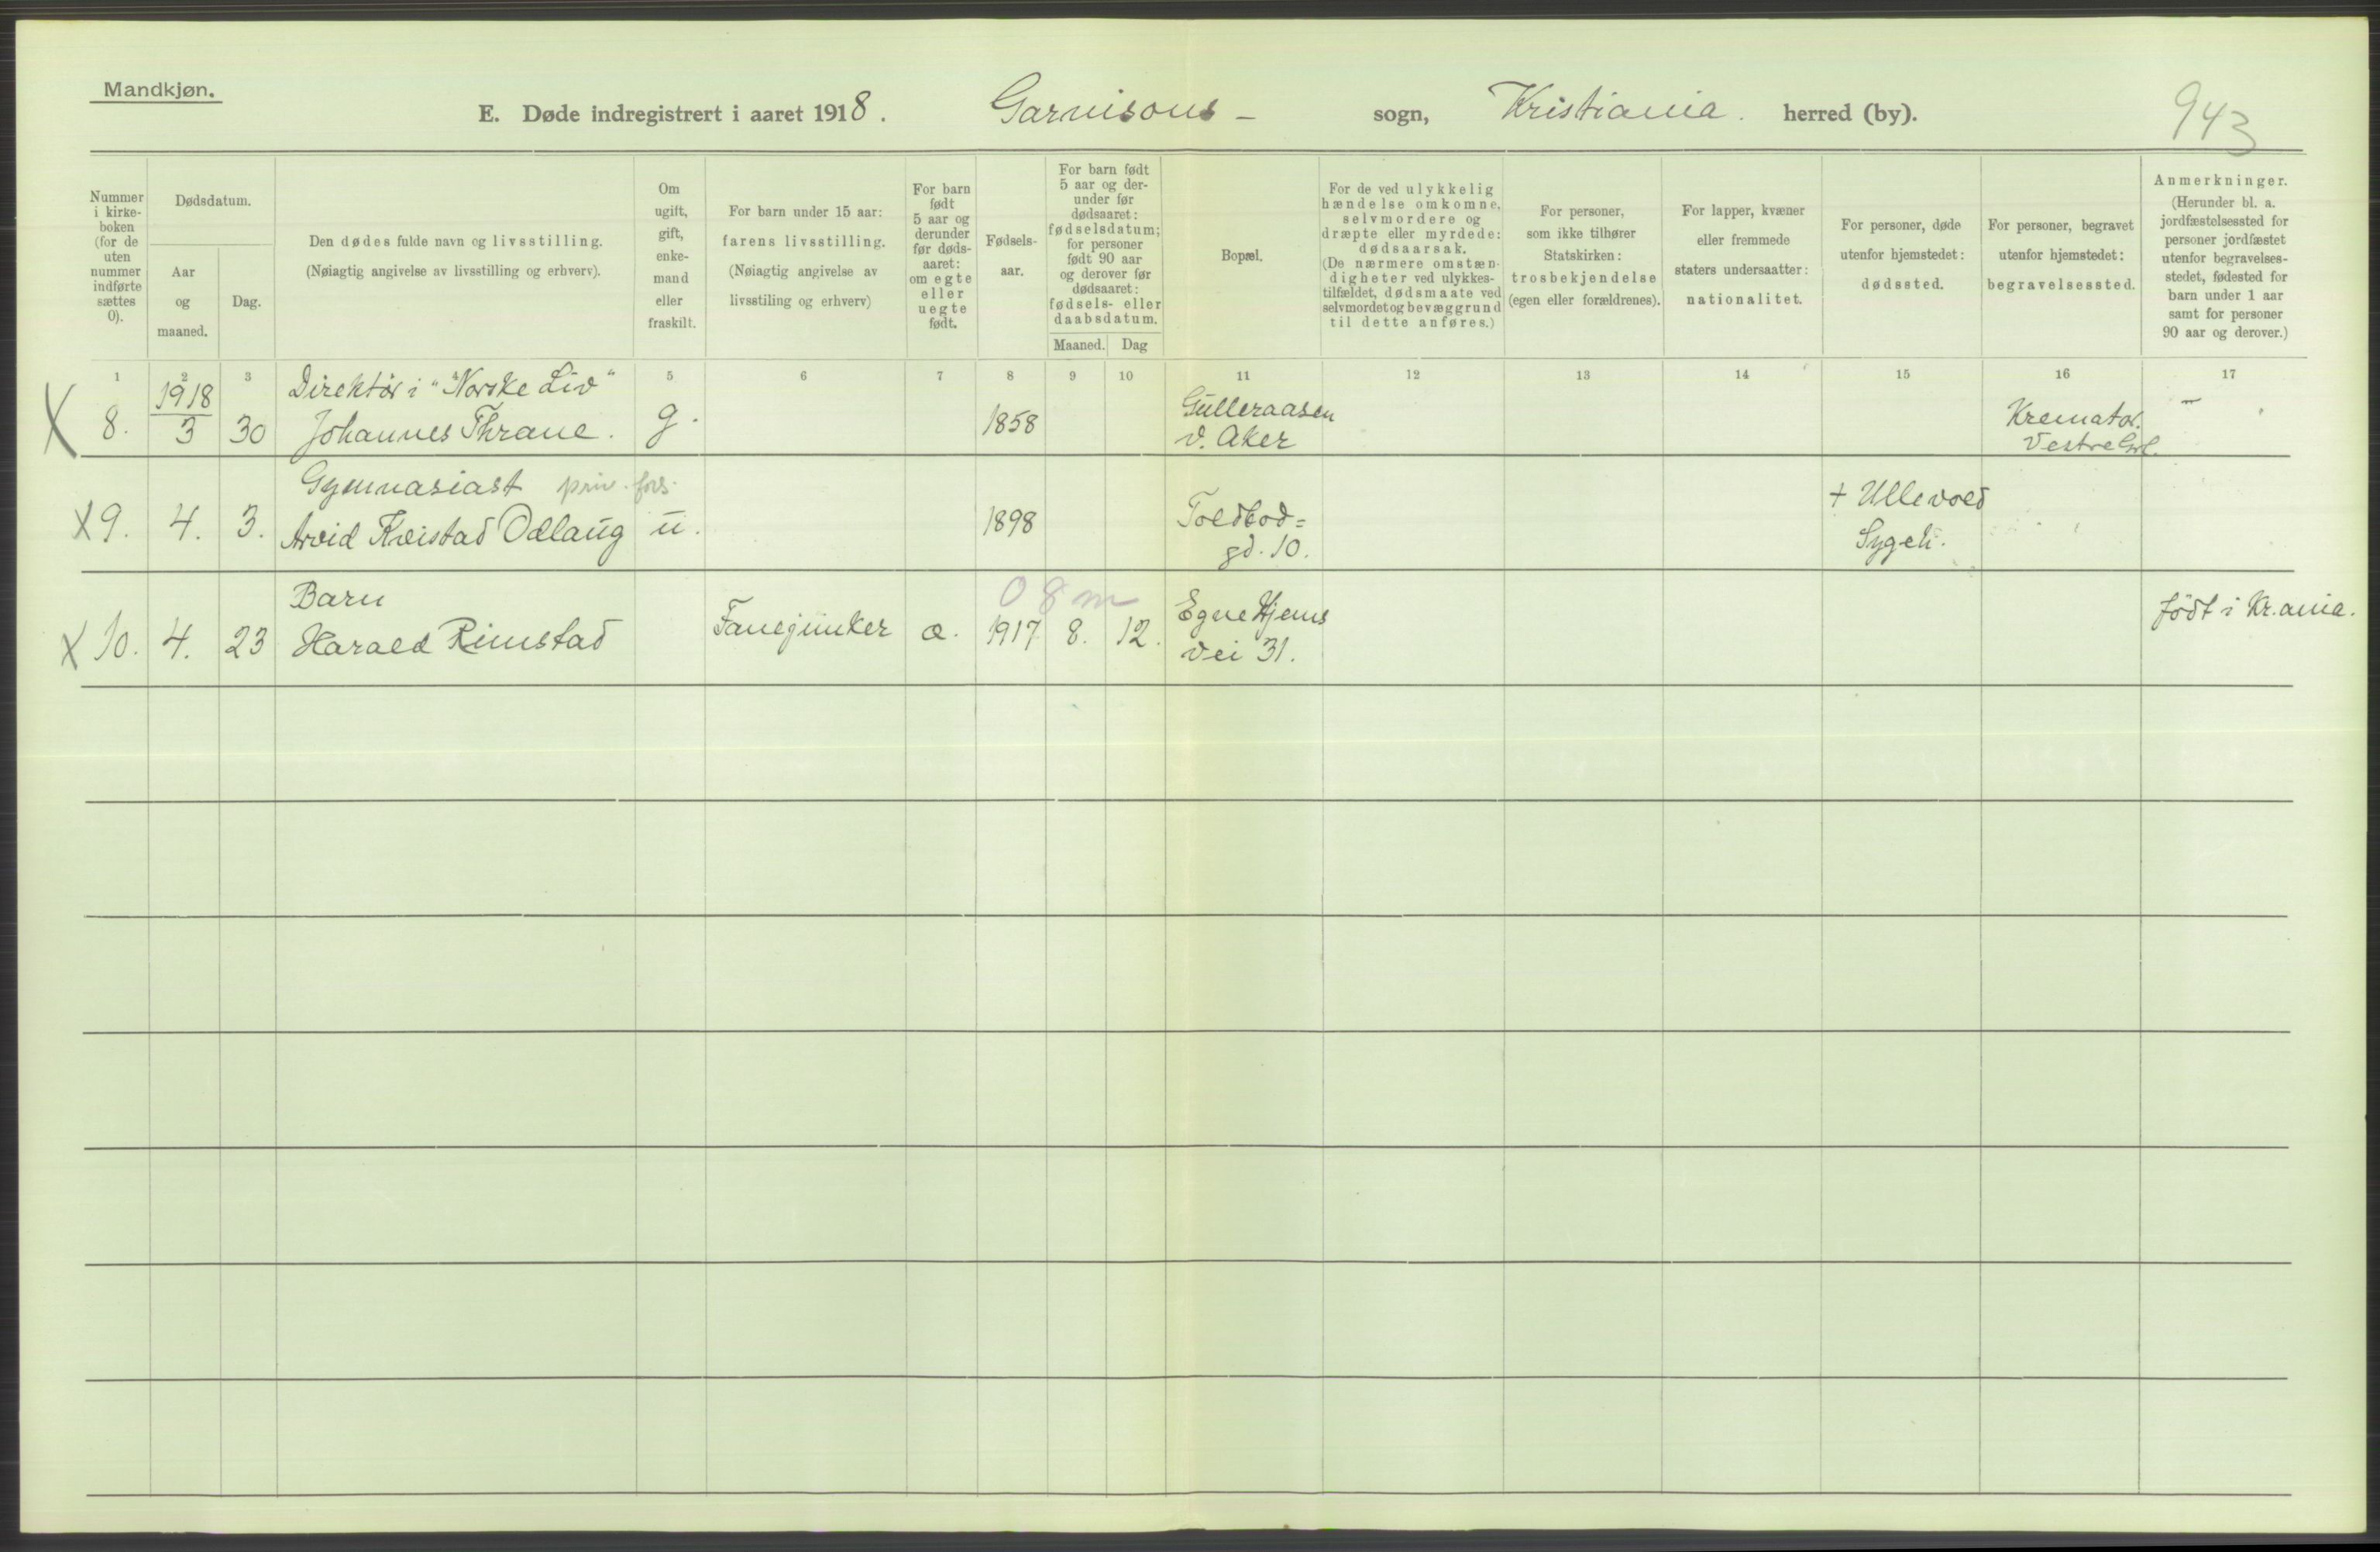 Mandkjøn.
E. Døde indregistrert i aaret 1918. Garnisons - sogn, Kristiania. herred (by).
943
Nummer i kirke-boken (for de uten nummer indførte sættes 0).
Dødsdatum.
Aar og maaned.
Dag.
Den dødes fulde navn og livsstilling.
(Nøiagtig angivelse av livsstilling og erhverv).
Om ugift, gift, enke-mand eller fraskilt.
For barn under 15 aar:
farens livsstilling.
(Nøiagtig angivelse av
livsstiling og erhverv)
For barn født 5 aar og derunder før døds-aaret: om egte eller uegte født.
Fødsels-aar.
For barn født
5 aar og der-
under før
dødsaaret:
fødselsdatum;
for personer
født 90 aar
og derover før
dødsaaret:
fødsels- eller
daabsdatum.
Maaned. Dag
Bopæl.
For de ved ulykkelig
hændelse omkomne,
selvmordere og
dræpte eller myrdede:
dødsaarsak.
(De nærmere omstæn-
digheter ved ulykkes-
tilfældet, dødsmaate ved
selvmordet og bevæggrund
til dette anføres.)
For personer,
som ikke tilhører
Statskirken:
trosbekjendelse
(egen eller forældrenes).
For lapper, kvæner
eller fremmede
staters undersaatter:
nationalitet.
For personer, døde
utenfor hjemstedet:
dødssted.
For personer, begravet
utenfor hjemstedet:
begravelsessted.
Anmerkninger.
(Herunder bl. a.
jordfæstelsessted for
personer jordfæstet
utenfor begravelses-
stedet, fødested for
barn under 1 aar
samt for personer
90 aar og derover.)
1 2 3 4 5 6 7 8 9 10 11 12 13 14 15 16 17
X 8. 1918 3 30 Direktör i "Norske Liv"
Johannes Thrane. g. 1858 Gulleraasen
v. Aker Kremator.
Vestre Grl. -
X 9. 4. 3. Gymnasiast priv. fors.
Arvid Kvistad Odlaug u. 1898 Toldbod=
gd. 10. + Ullevold
Sygeh.
X 10. 4. 23 Barn
Harald Rimstad Fanejunker æ. 0 8 m
1917 8. 12. Egne Hjems
vei 31. födt i Kr.ania.